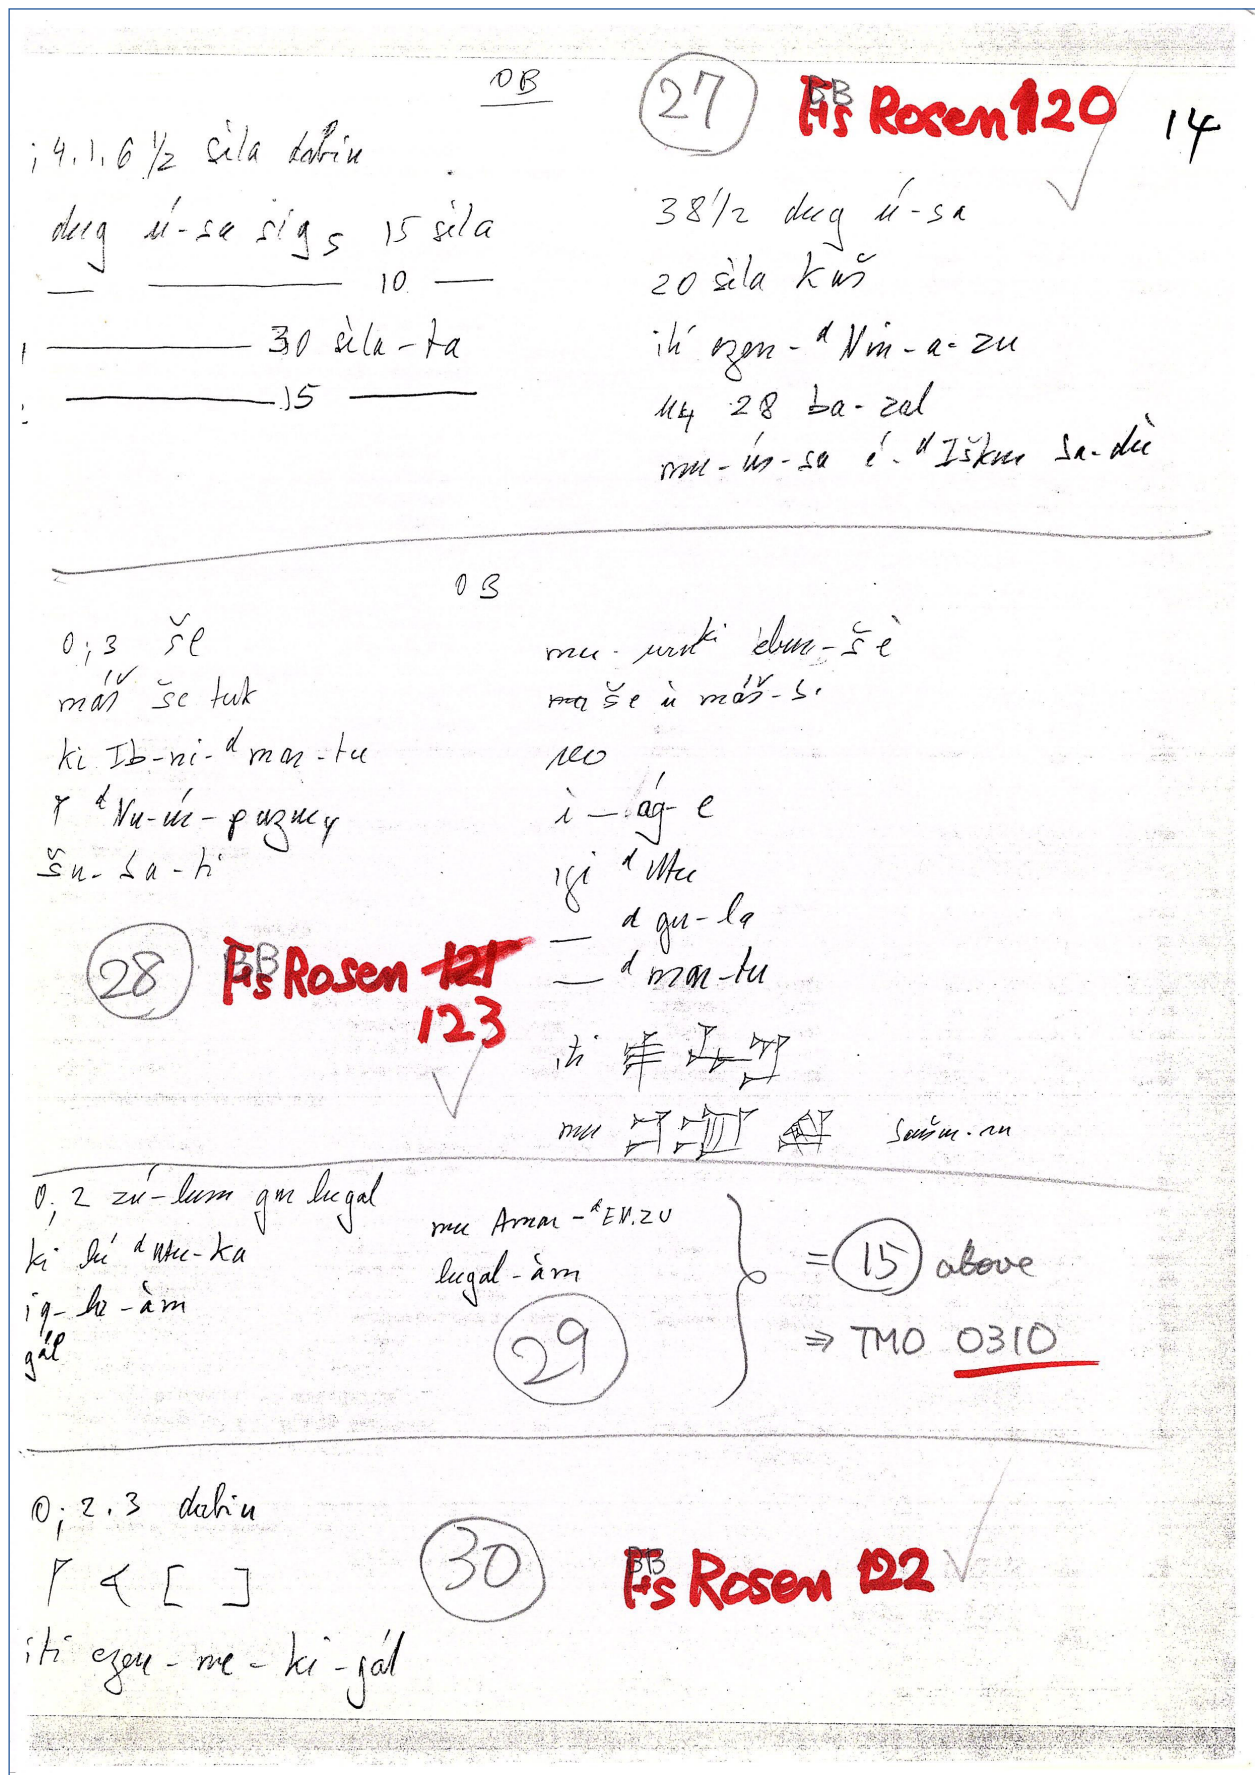 OB
27
Fs Rosen 120
14
;4.1.6 1/2 sìla dabin
dug ú-sa sig5 15 sìla
— — 10 —
— 30 sìla-ta
— 15 —
38 1/2 dug ú-sa
20 sìla kaš
iti ezen-d Nin-a-zu
u4 28 ba-zal
mu-ús-sa é-d Iškur ba-dù
OB
0;3 še
máš še tuk
ki Ib-ni-d mar-tu
d Nu-úr-
šu-ba-ti
28
Fs Rosen 121
123
mu-urki ebur-šè
ma še ù máš-bi
ì-ág-e
igi d Utu
— d gu-la
— d mar-tu
iti
mu
0;2 zú-lum gur lugal
ki lú d Utu-ka
ì-gál
mu Amar-dEN.ZU
lugal-àm
29
= 15 above
⇒ TMO 0310
0;2.3 dabin
[ ]
iti ezen-me-ki-gál
30
Fs Rosen 122